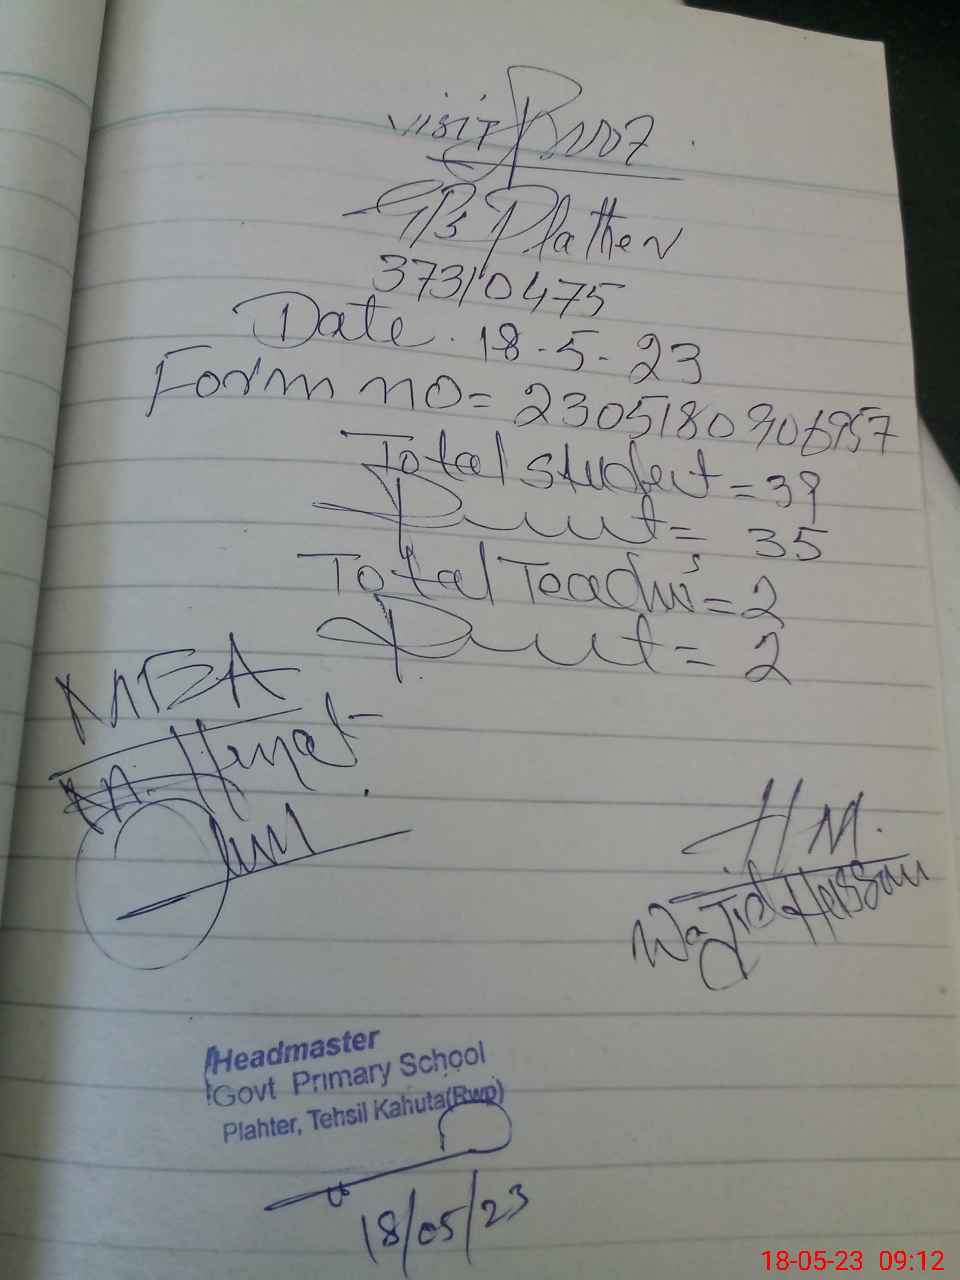 Visit Proof
GPS Plather
37310475
Date. 18-5-23
Form no= 2305180906957
Total student = 39
= 35
Total Teacher = 2
= 2
MEA
M.
HM.
Wajid Hussain
Headmaster
Govt Primary School
Plahter, Tehsil Kahuta(Rwp)
18/05/23
18-05-23 09:12